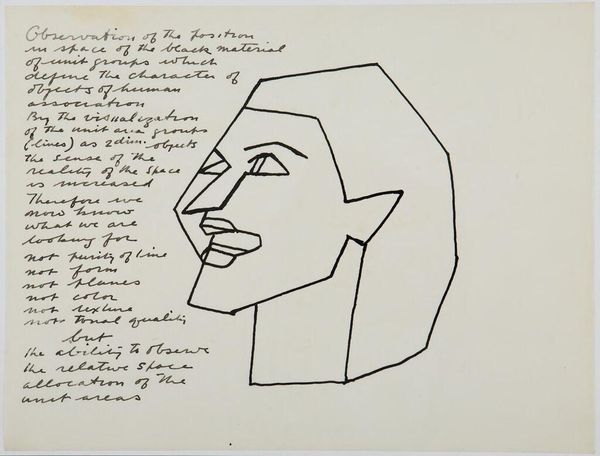 Observation of the position
in space of the black material
of unit groups which
define the character of
objects of human
association
By the visualization
of the unit area groups
(lines) as 2 dim. objects
the sense of the
reality of the space
is increased
Therefore we
now know
what we are
looking for
not purity of line
not form
not planes
not color
not texture
not tonal quality
but
the ability to observe
the relative space
allocation of the
unit areas